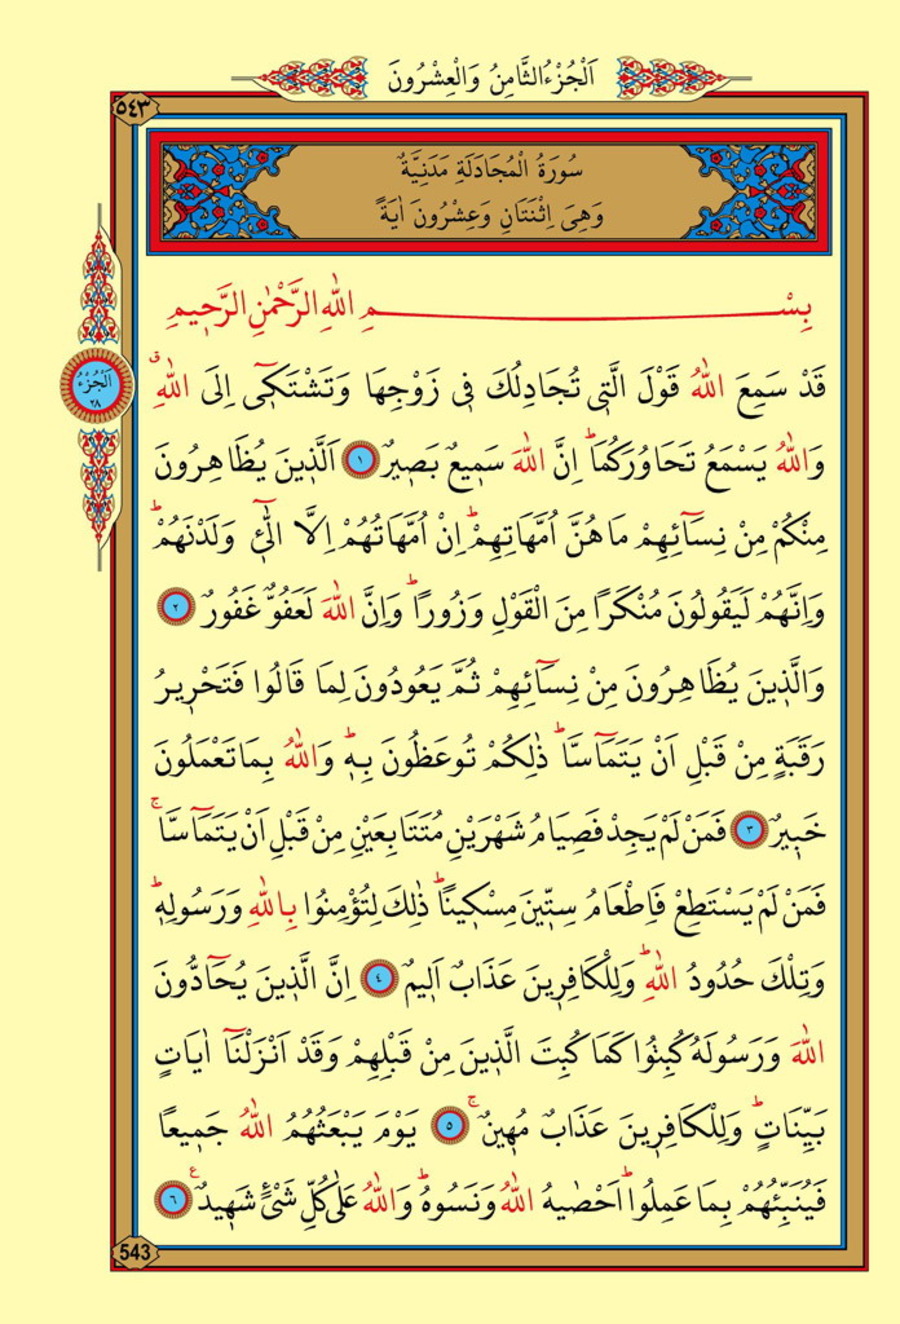 اَلْجُزْءُ الثَّامِنُ وَالْعِشْرُونَ
٥٤٣
سُورَةُ الْمُجَادَلَةِ مَدَنِيَّةٌ
وَهِىَ اِثْنَتَانِ وَعِشْرُونَ اٰيَةً
بِسْـــمِ اللّٰهِ الرَّحْمٰنِ الرَّحٖيمِ
اَلْجُزْءُ
٢٨
قَدْ سَمِعَ اللّٰهُ قَوْلَ الَّتٖى تُجَادِلُكَ فٖى زَوْجِهَا وَتَشْتَكٖٓى اِلَى اللّٰهِۗ
وَاللّٰهُ يَسْمَعُ تَحَاوُرَكُمَاؕ اِنَّ اللّٰهَ سَمٖيعٌ بَصٖيرٌ ١ اَلَّذٖينَ يُظَاهِرُونَ
مِنْكُمْ مِنْ نِسَٓائِهِمْ مَا هُنَّ اُمَّهَاتِهِمْؕ اِنْ اُمَّهَاتُهُمْ اِلَّا الّٰٓـٖٔى وَلَدْنَهُمْؕ
وَاِنَّهُمْ لَيَقُولُونَ مُنْكَرًا مِنَ الْقَوْلِ وَزُورًاؕ وَاِنَّ اللّٰهَ لَعَفُوٌّ غَفُورٌ ٢
وَالَّذٖينَ يُظَاهِرُونَ مِنْ نِسَٓائِهِمْ ثُمَّ يَعُودُونَ لِمَا قَالُوا فَتَحْرٖيرُ
رَقَبَةٍ مِنْ قَبْلِ اَنْ يَتَمَٓاسَّاؕ ذٰلِكُمْ تُوعَظُونَ بِهٖؕ وَاللّٰهُ بِمَا تَعْمَلُونَ
خَبٖيرٌ ٣ فَمَنْ لَمْ يَجِدْ فَصِيَامُ شَهْرَيْنِ مُتَتَابِعَيْنِ مِنْ قَبْلِ اَنْ يَتَمَٓاسَّاۚ
فَمَنْ لَمْ يَسْتَطِعْ فَاِطْعَامُ سِتّٖينَ مِسْكٖينًاؕ ذٰلِكَ لِتُؤْمِنُوا بِاللّٰهِ وَرَسُولِهٖؕ
وَتِلْكَ حُدُودُ اللّٰهِؕ وَلِلْكَافِرٖينَ عَذَابٌ اَلٖيمٌ ٤ اِنَّ الَّذٖينَ يُحَٓادُّونَ
اللّٰهَ وَرَسُولَهُ كُبِتُوا كَمَا كُبِتَ الَّذٖينَ مِنْ قَبْلِهِمْ وَقَدْ اَنْزَلْنَٓا اٰيَاتٍ
بَيِّنَاتٍؕ وَلِلْكَافِرٖينَ عَذَابٌ مُهٖينٌۚ ٥ يَوْمَ يَبْعَثُهُمُ اللّٰهُ جَمٖيعًا
فَيُنَبِّئُهُمْ بِمَا عَمِلُواؕ اَحْصٰيهُ اللّٰهُ وَنَسُوهُؕ وَاللّٰهُ عَلٰى كُلِّ شَىْءٍ شَهٖيدٌ ع ٦
543